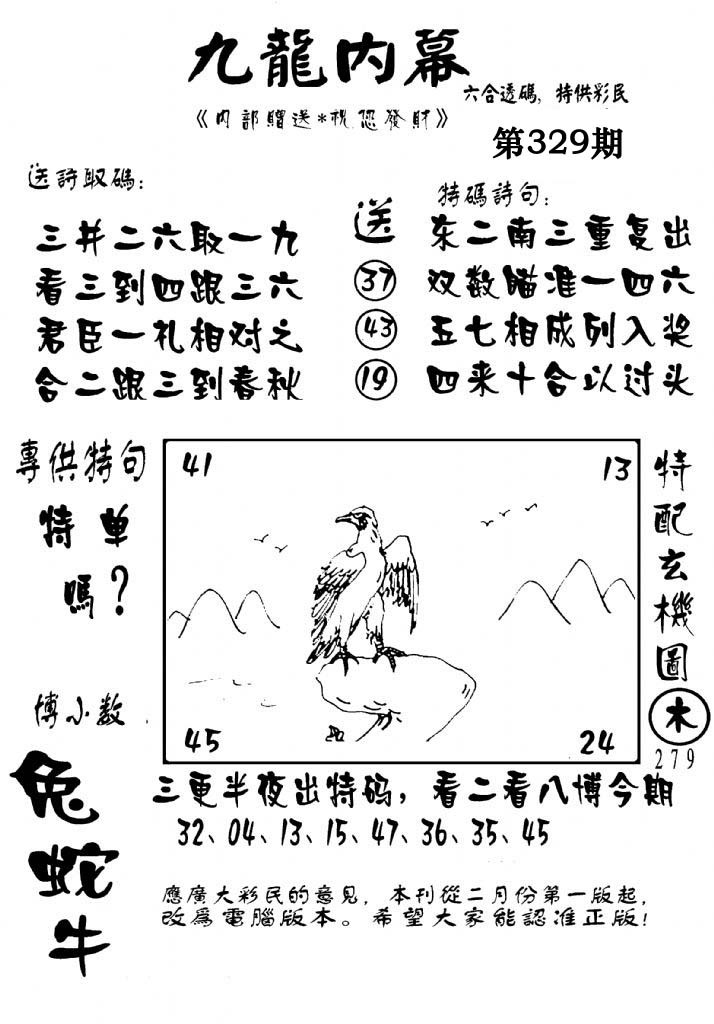 九龍内幕
六合透碼，特供彩民
《内部贈送*祝您發財》
第329期
送詩取碼：
三井二六取一九
看三到四跟三六
君臣一礼相对之
合二跟三到春秋
送
37
43
19
特碼詩句：
东二南三重复出
双数瞄准一四六
五七相成列入奖
四来十合以过头
專供特句
特单
嗎？
博小数
兔
蛇
牛
41
13
45
24
特配玄機圖
木
279
三更半夜出特码，看二看八博今期
32、04、13、15、47、36、35、45
應廣大彩民的意見，本刊從二月份第一版起，
改爲電腦版本。希望大家能認准正版！